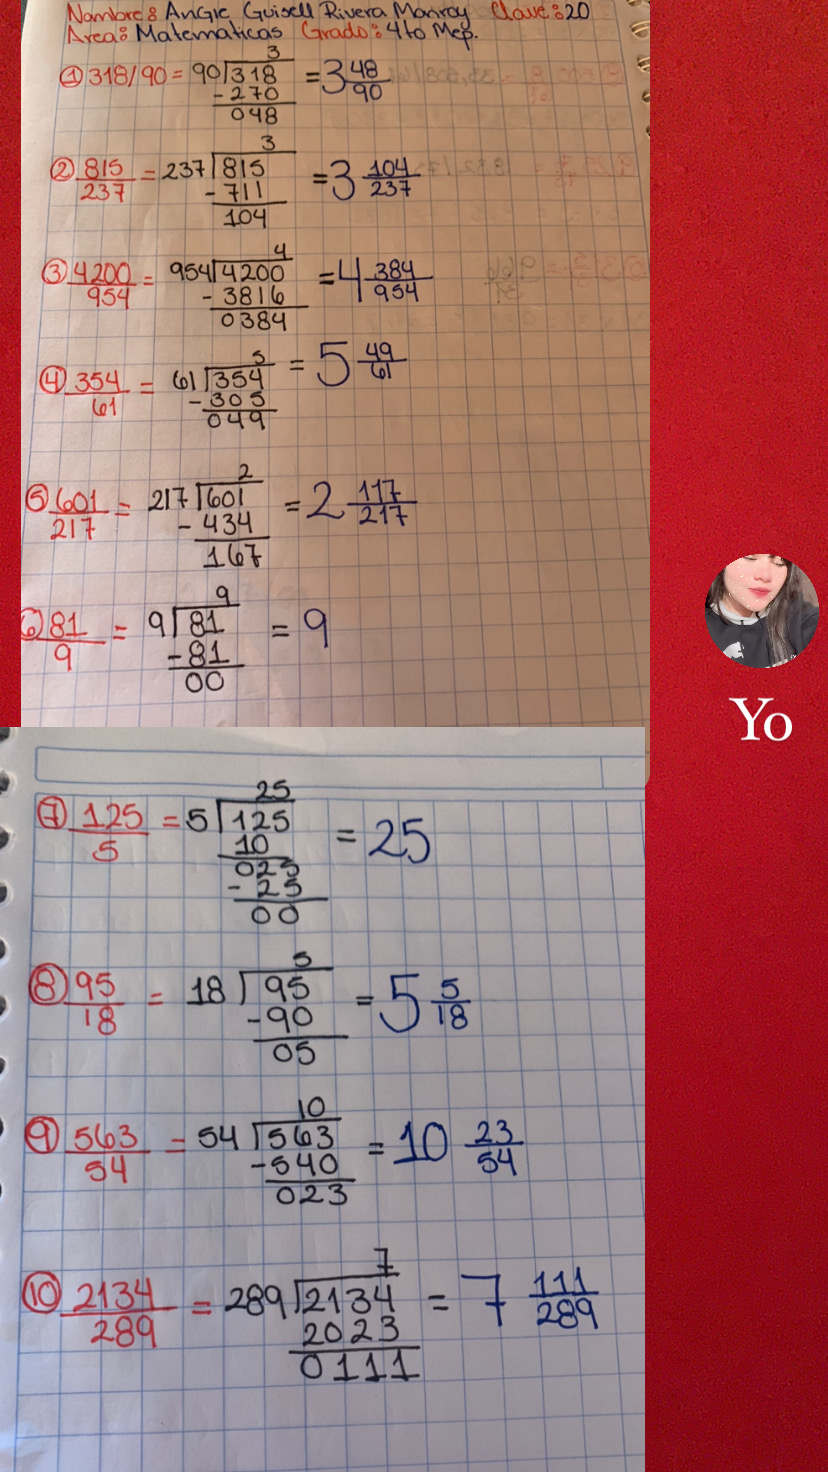 Nombre: Angie Guisell Rivera Monroy Clave: 20
Area: Matematicas Grado: 4to Mep.
① 318/90 = 90 318 3 = 3 48/90
- 270
048
② 815/237 = 237 815 3 = 3 104/237
- 711
104
③ 4200/954 = 954 4200 4 = 4 384/954
- 3816
0384
④ 354/61 = 61 354 5 = 5 49/61
- 305
049
⑤ 601/217 = 217 601 2 = 2 117/217
- 434
167
⑥ 81/9 = 9 81 9 = 9
- 81
00
Yo
⑦ 125/5 = 5 125 25 = 25
10
025
- 25
00
⑧ 95/18 = 18 95 5 = 5 5/18
- 90
05
⑨ 563/54 = 54 563 10 = 10 23/54
- 540
023
⑩ 2134/289 = 289 2134 7 = 7 111/289
2023
0111